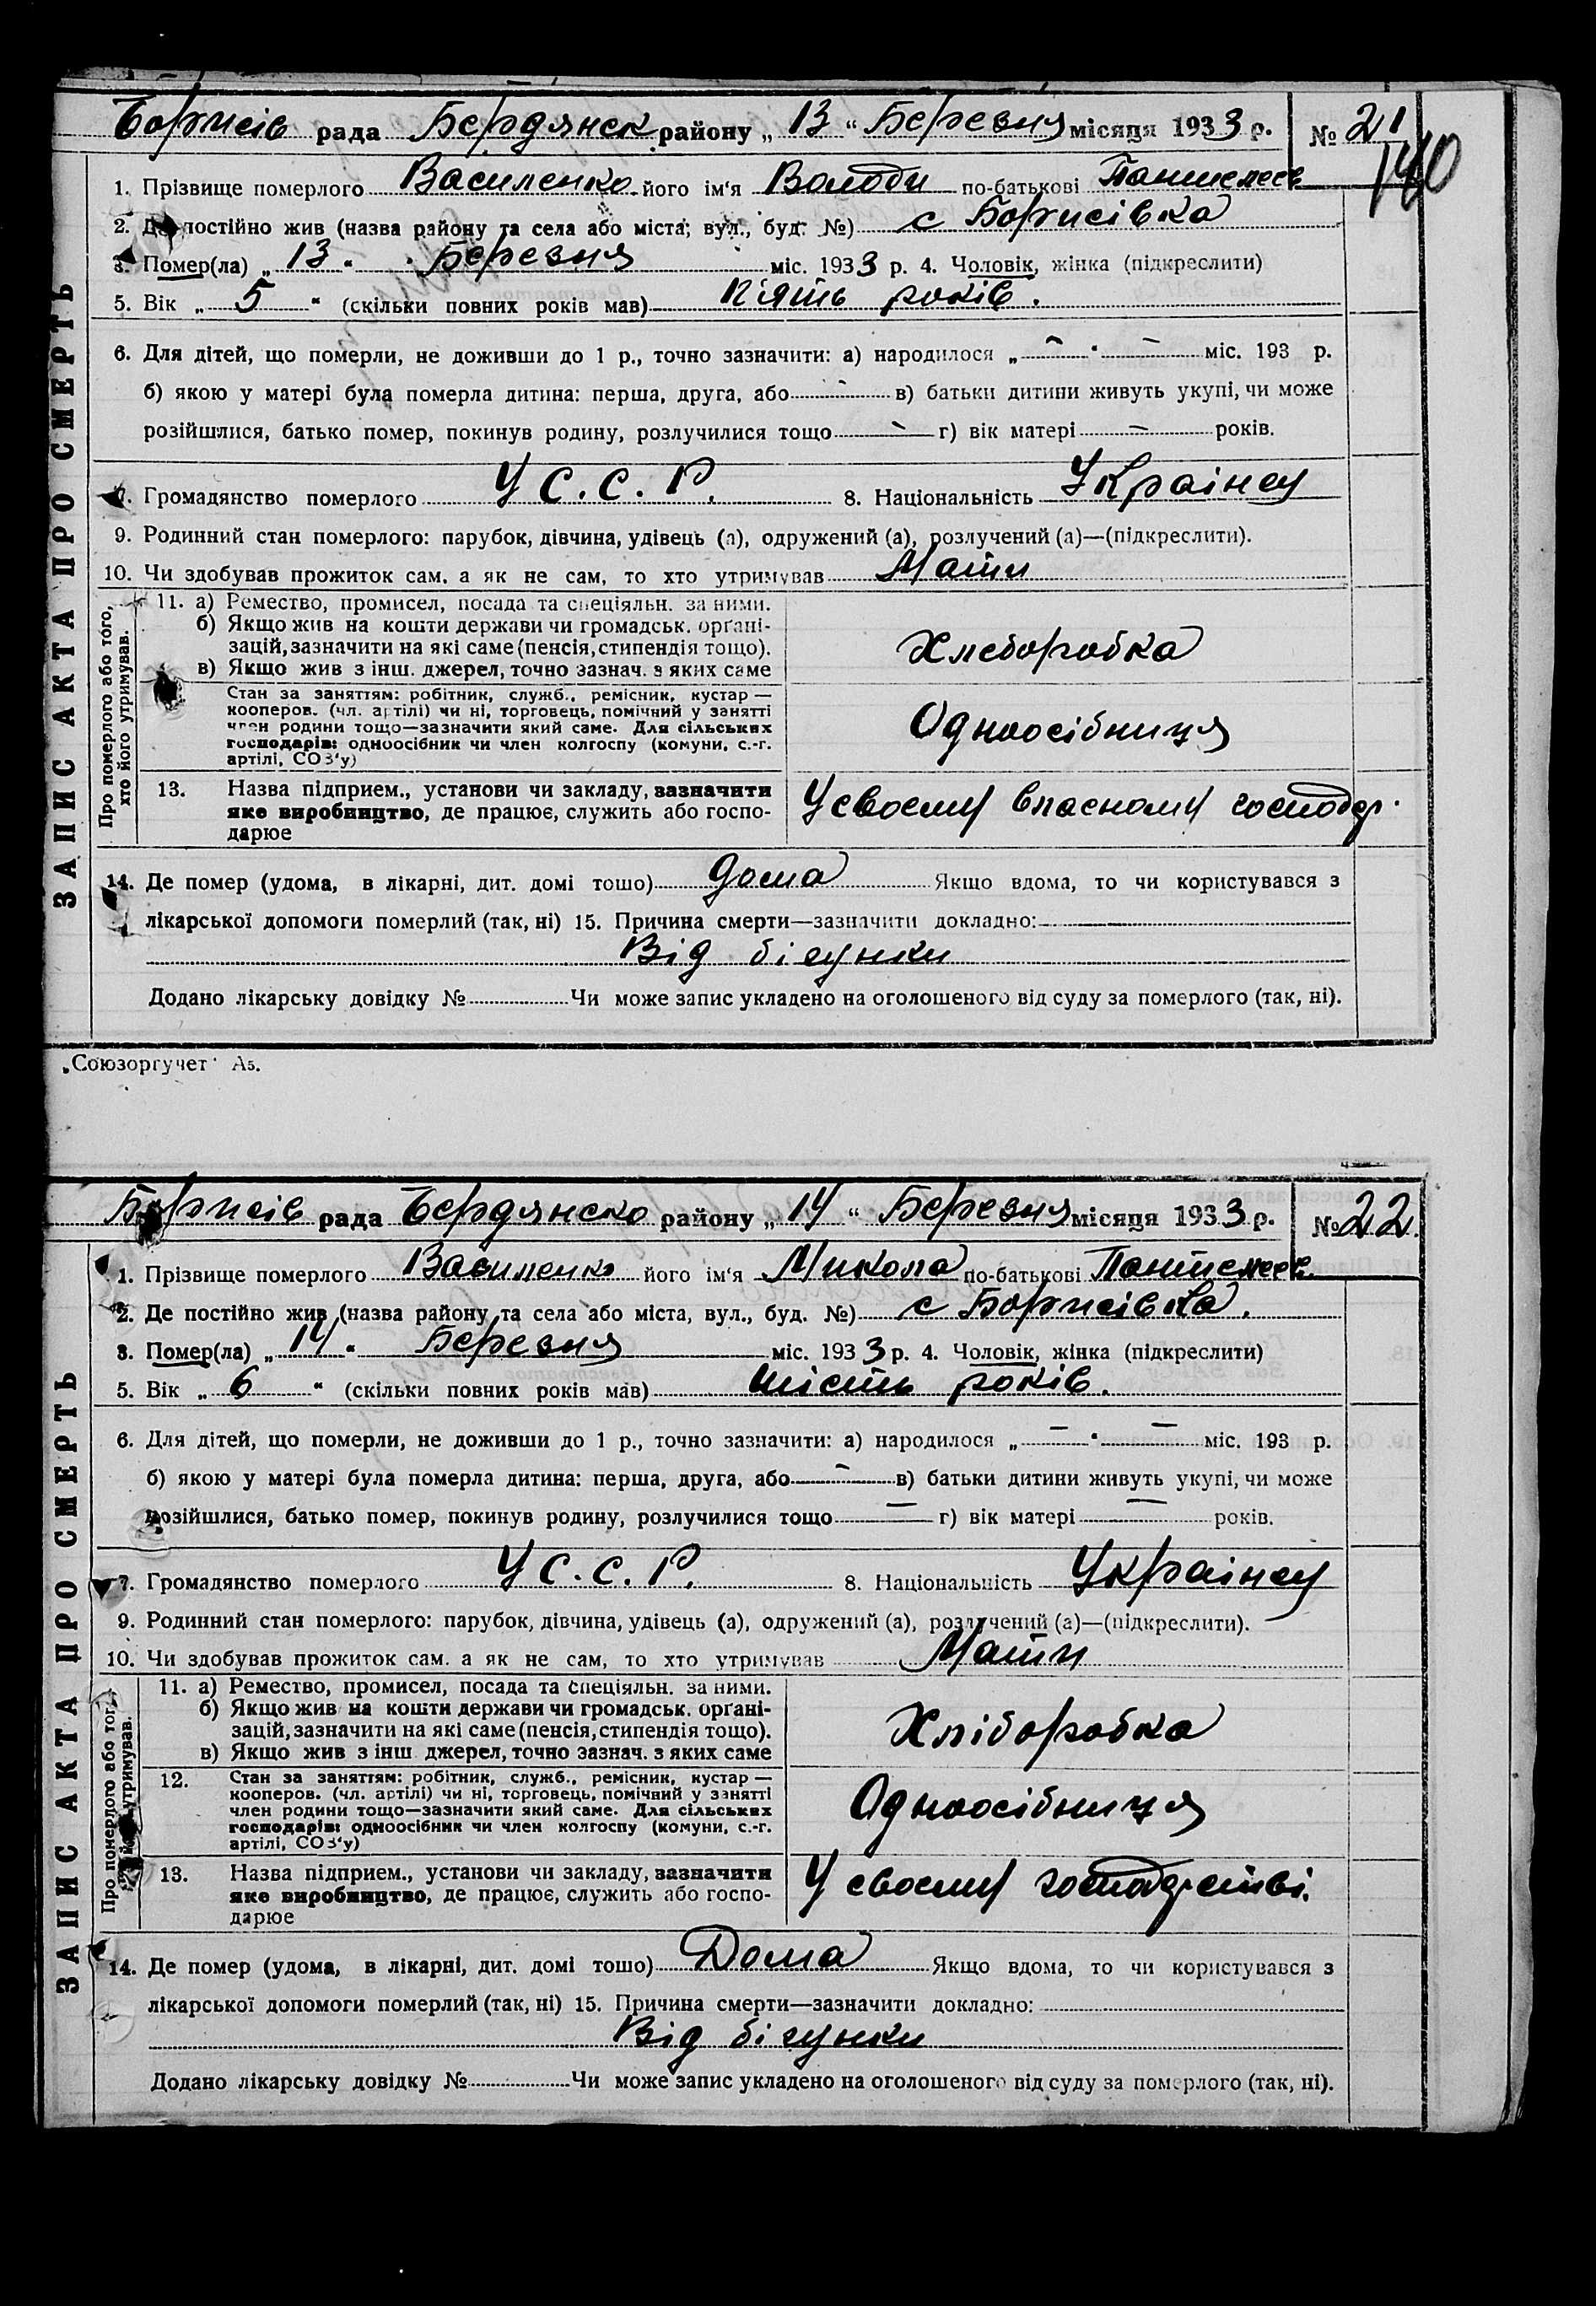 Борисів рада Бердянск району „ 13 “ Березня місяця 1933 р. № 21
140
1. Прізвище померлого Василенко його ім'я Володи по-батькові Пантелеєв
2. Де постійно жив (назва району та села або міста, вул., буд. №) с Борисівка
3. Помер(ла) „ 13 “ Березня міс. 1933 р. 4. Чоловік, жінка (підкреслити)
5. Вік „ 5 “ (скільки повних років мав) п'ять років.
6. Для дітей, що померли, не доживши до 1 р., точно зазначити: а) народилося „ — “ — міс. 193 р.
б) якою у матері була померла дитина: перша, друга, або — в) батьки дитини живуть укупі, чи може
розійшлися, батько помер, покинув родину, розлучилися тощо — г) вік матері — років.
7. Громадянство померлого У С. С. Р. 8. Національність Українец
9. Родинний стан померлого: парубок, дівчина, удівець (а), одружений (а), розлучений (а)—(підкреслити).
10. Чи здобував прожиток сам, а як не сам, то хто утримував Мати
ЗАПИС АКТА ПРО СМЕРТЬ
Про померлого або того, хто його утримував.
11. а) Ремество, промисел, посада та спеціяльн. за ними.
б) Якщо жив на кошти держави чи громадськ. орґані-
зацій, зазначити на які саме (пенсія, стипендія тощо).
в) Якщо жив з інш. джерел, точно зазнач. з яких саме
Хлеборобка
Стан за заняттям: робітник, служб., ремісник, кустар —
кооперов. (чл. артілі) чи ні, торговець, помічний у занятті
член родини тощо—зазначити який саме. Для сільських
господарів: одноосібник чи член колгоспу (комуни, с.-г.
артілі, СОЗ'у)
Одноосібниця
13. Назва підприєм., установи чи закладу, зазначити
яке виробництво, де працює, служить або госпо-
дарює
У своєму власному господар.
14. Де помер (удома, в лікарні, дит. домі тощо) дома Якщо вдома, то чи користувався з
лікарської допомоги померлий (так, ні) 15. Причина смерти—зазначити докладно:
Від бігунки
Додано лікарську довідку № Чи може запис укладено на оголошеного від суду за померлого (так, ні).
„Союзоргучет“ А5.
Борисів рада Бердянско району „ 14 “ Березня місяця 1933 р. № 22.
1. Прізвище померлого Василенко його ім'я Микола по-батькові Пантелеєв.
2. Де постійно жив (назва району та села або міста, вул., буд. №) с Борисівка.
3. Помер(ла) „ 14 “ Березня міс. 1933 р. 4. Чоловік, жінка (підкреслити)
5. Вік „ 6 “ (скільки повних років мав) шість років.
6. Для дітей, що померли, не доживши до 1 р., точно зазначити: а) народилося „ — “ — міс. 193 р.
б) якою у матері була померла дитина: перша, друга, або — в) батьки дитини живуть укупі, чи може
розійшлися, батько помер, покинув родину, розлучилися тощо — г) вік матері — років.
7. Громадянство померлого У С. С. Р. 8. Національність Українец
9. Родинний стан померлого: парубок, дівчина, удівець (а), одружений (а), розлучений (а)—(підкреслити).
10. Чи здобував прожиток сам, а як не сам, то хто утримував Мати
ЗАПИС АКТА ПРО СМЕРТЬ
Про померлого або того, утримував.
11. а) Ремество, промисел, посада та спеціяльн. за ними.
б) Якщо жив на кошти держави чи громадськ. орґані-
зацій, зазначити на які саме (пенсія, стипендія тощо).
в) Якщо жив з інш джерел, точно зазнач. з яких саме
Хліборобка
12. Стан за заняттям: робітник, служб., ремісник, кустар —
кооперов. (чл. артілі) чи ні, торговець, помічний у занятті
член родини тощо—зазначити який саме. Для сільських
господарів: одноосібник чи член колгоспу (комуни, с.-г.
артілі, СОЗ'у)
Одноосібниця
13. Назва підприєм., установи чи закладу, зазначити
яке виробництво, де працює, служить або госпо-
дарює
У своєму господрстві.
14. Де помер (удома, в лікарні, дит. домі тощо) Дома Якщо вдома, то чи користувався з
лікарської допомоги померлий (так, ні) 15. Причина смерти—зазначити докладно:
Від бігунки
Додано лікарську довідку № Чи може запис укладено на оголошеного від суду за померлого (так, ні).